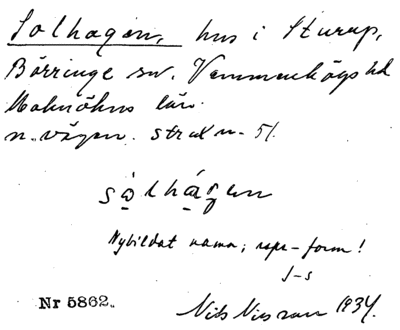 Solhagen, hus i Sturup,
Börringe sn. Vemmenhögs hd
Malmöhus län.
n. vägen. strax n. 51.
sǫ̀lhágen
Nybildat namn; repr-form!
J-s
Nr 5862. Nils Nilsson 1934.